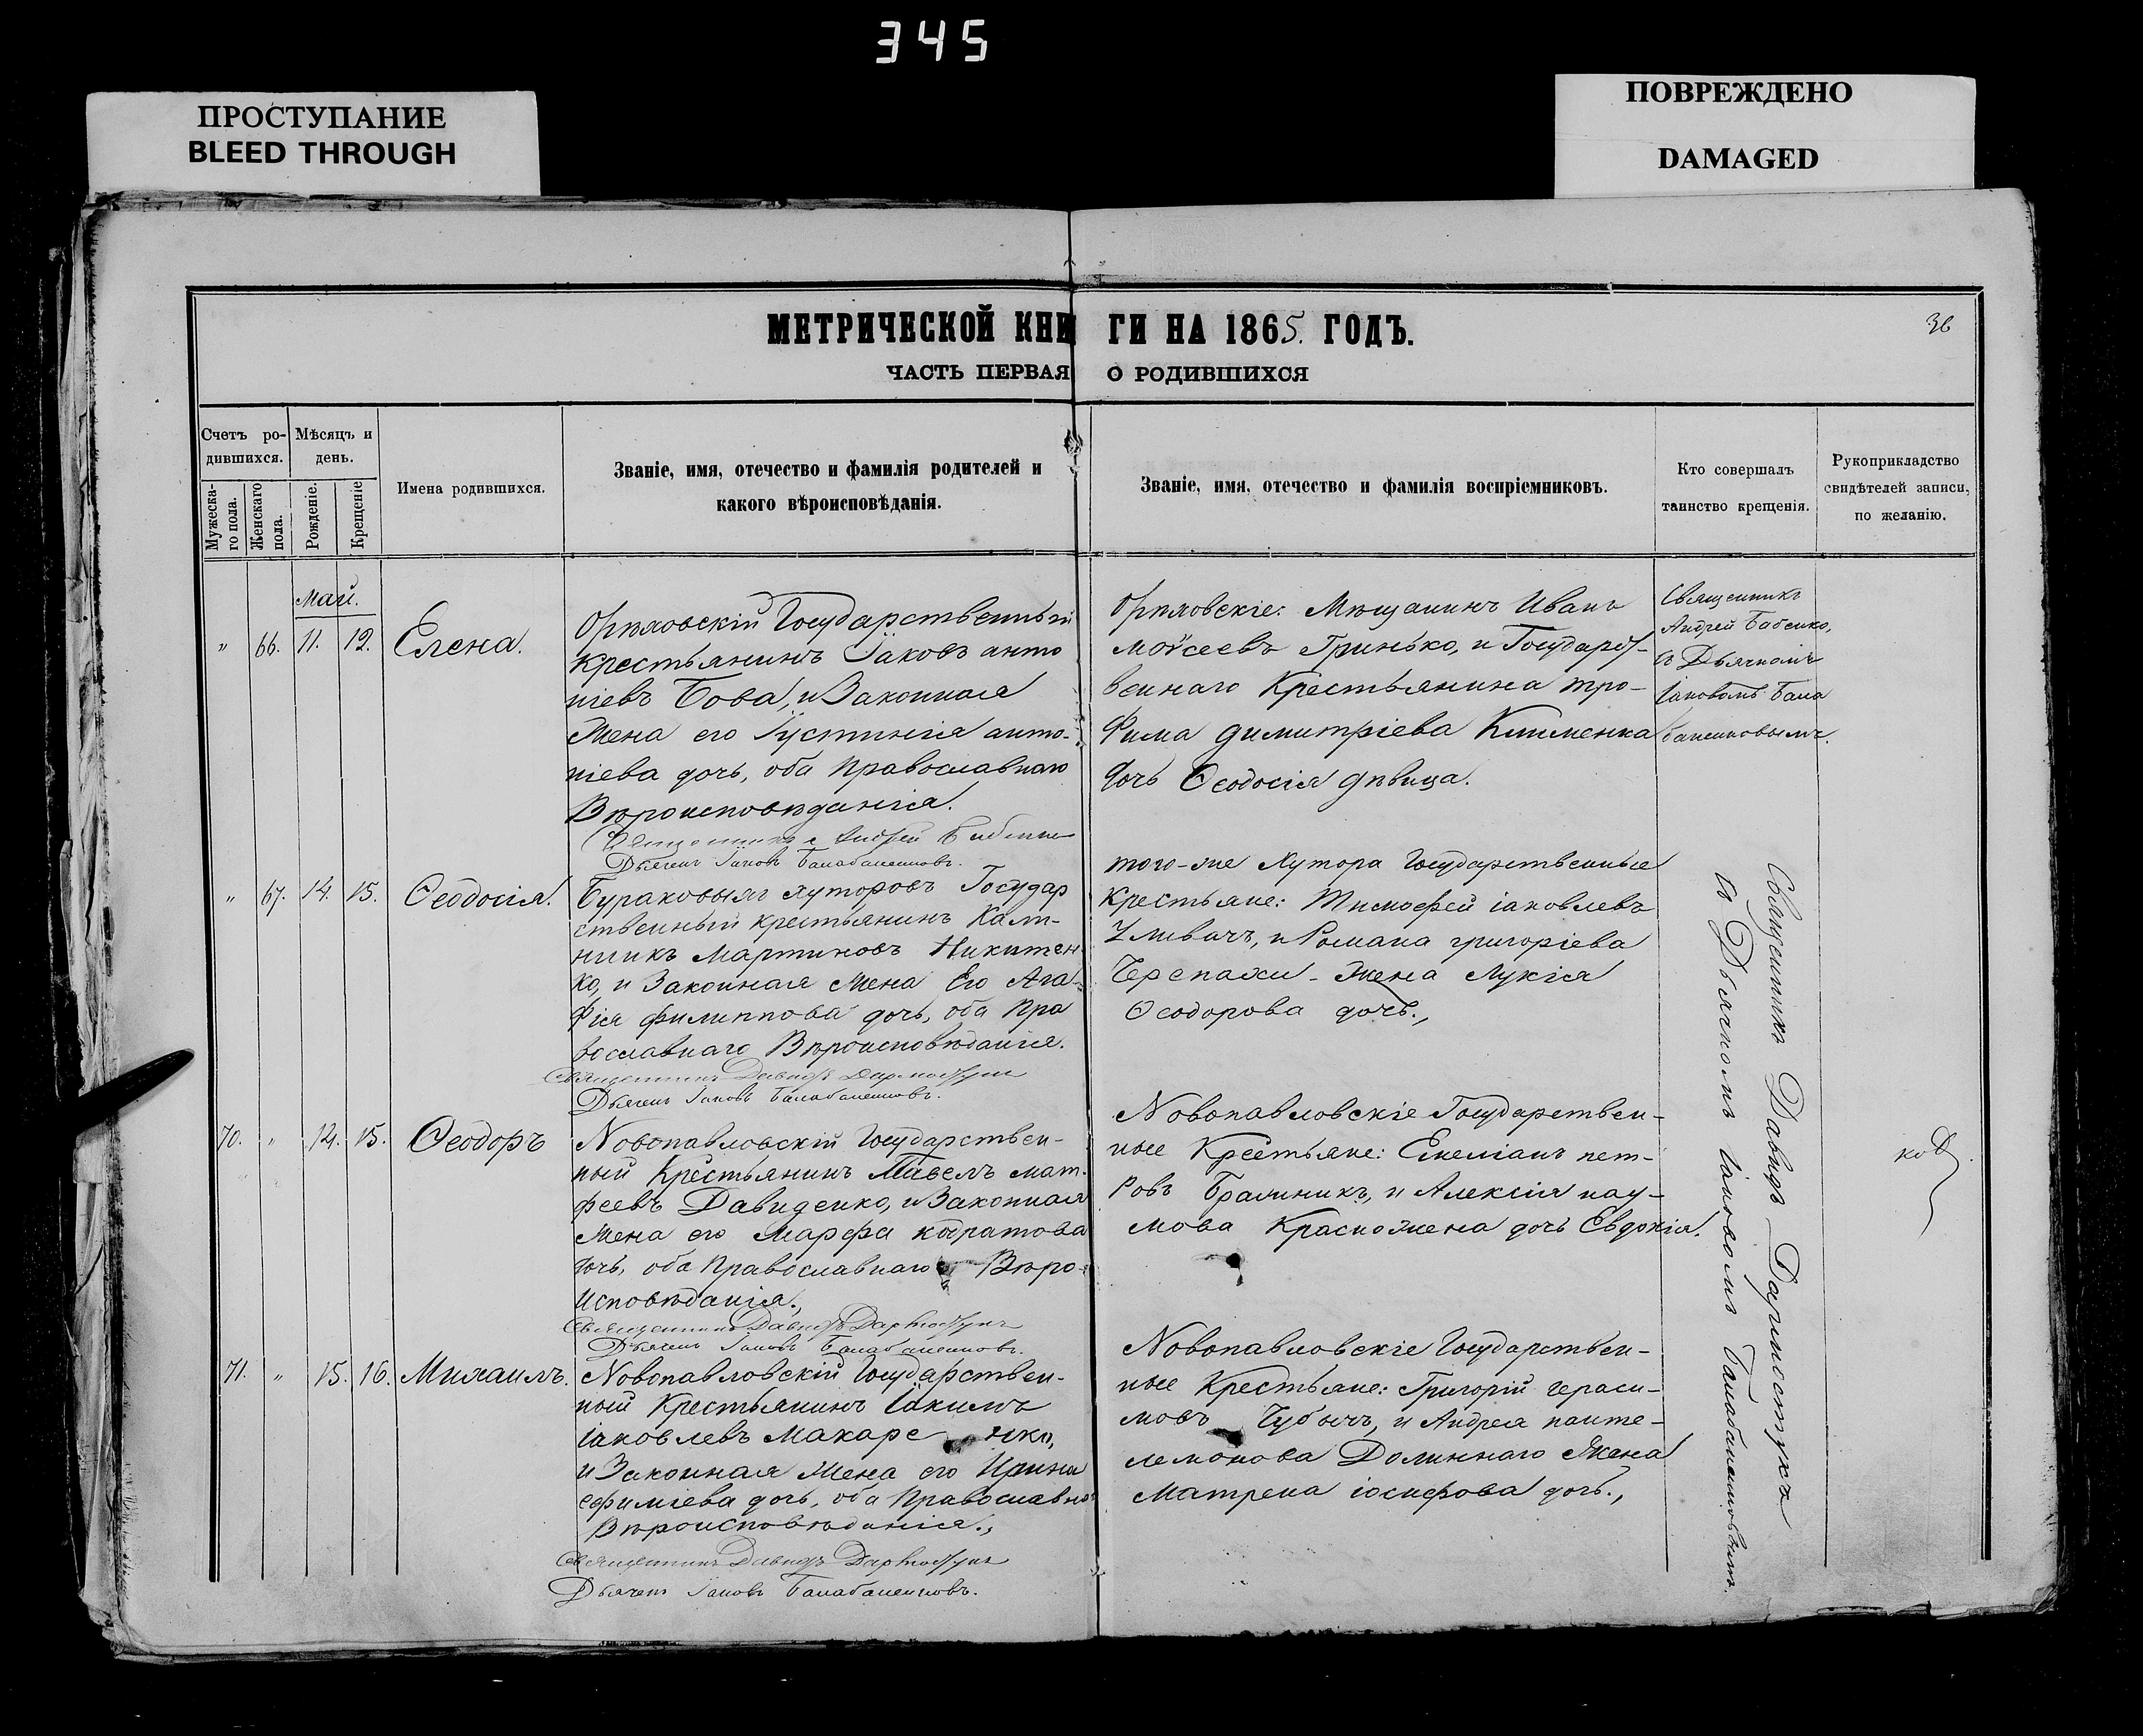 345
ПРОСТУПАНИЕ
BLEED THROUGH
ПОВРЕЖДЕНО
DAMAGED
МЕТРИЧЕСКОЙ КНИГИ НА 1865. ГОДЪ.
36
ЧАСТЬ ПЕРВАЯ О РОДИВШИХСЯ
Счетъ ро-
дившихся.
Мужеска-
го пола.
Женскаго
пола.
Мѣсяцъ и
день.
Рожденіе.
Крещеніе
Имена родившихся.
Званіе, имя, отечество и фамилія родителей и
какого вѣроисповѣданія.
Званіе, имя, отечество и фамилія воспріемниковъ.
Кто совершалъ
таинство крещенія.
Рукоприкладство
свидѣтелей записи,
по желанію.
Май.
" 66. 11. 12. Елена.
Орѣховскій Государственный
крестьянинъ Іаковъ анто
ніевъ Бова, и Законная
Жена его Іустинія анто-
ніева дочь, оба Православнаго
Вѣроисповѣданія.
Священникъ Андрей Бабенко
Дьячекъ Іаковъ Балабаненковъ.
Орѣховскіе: Мѣщанинъ Иванъ
Моѵсеевъ Гринько, и Государст-
веннаго Крестьянина тро-
фима димитріева Клименка
дочь Ѳеодосія дѣвица.
Священникъ
Андрей Бабенко,
съ Дьячкомъ
Іаковомъ Бала
баненковымъ.
" 67. 14. 15. Ѳеодосія.
Бураковыхъ хуторовъ Государ
ственный крестьянинъ Кали-
никъ Мартиновъ Никитен
ко, и Законная Жена Его Ага-
фія филиппова дочь, оба Пра
вославнаго Вѣроисповѣданія.
Священникъ Давидъ
Дьячекъ Іаковъ Балабаненковъ.
того-же Хутора Государственные
Крестьяне: Тимофей іаковлевъ
и Романа григоріева
Черепахи Жена Лукія
Ѳеодорова дочь.,
70. " 14. 15. Ѳеодоръ
Новопавловскій Государствен-
ный Крестьянинъ Павелъ мат-
феевъ Давиденко, и Законная
Жена его Марфа кодратова
дочь, оба Православнаго Вѣро-
исповѣданія.,
Священникъ Давидъ
Дьячекъ Іаковъ Балабаненковъ.
Новопавловскіе Государствен-
ные Крестьяне: Емеліанъ пет-
ровъ и Алексія нау-
мова Красножена дочь Евдокія.
71. " 15. 16. Михаилъ.
Новопавловскій Государствен-
ный Крестьянинъ Іакимъ
іаковлевъ Макаренко,
и Законная Жена его Ирина
ефиміева дочь, оба Православнаго
Вѣроисповѣданія.,
Священникъ Давидъ
Дьячекъ Іаковъ Балабаненковъ.
Новопавловскіе Государствен-
ные Крестьяне: Григорій гераси-
мовъ и Андрея панте-
лемонова Долиннаго Жена
Матрена іосифова дочь.,
Священникъ Давидъ
съ Дьячкомъ Іаковомъ Балабаненковымъ.